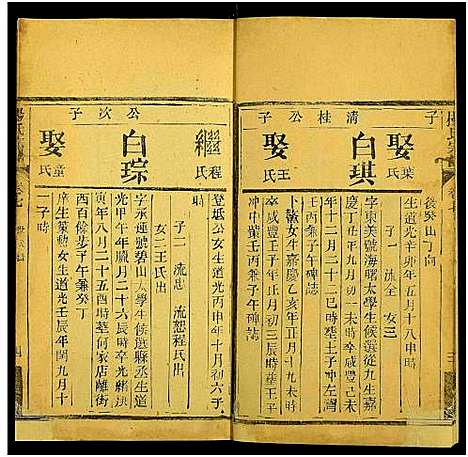 子
清桂公子
娶 葉氏
生道光辛卯年五月十八申時
後癸山丁向
白琪
子一 流全 女三
字東美號海曙太學生候選從九生嘉
慶丁丑年九月初三辰時卒咸豐己未
年十二月二十二巳時葬王子冲左灣
壬丙兼子午碑誌
娶 王氏
卜鰲女生嘉慶乙亥年正月十九未時
卒咸豐壬子年正月初三辰時葬王平
冲中灣壬丙兼子午碑誌
公次子
繼 程氏
登坻公女生道光丙申年十月初六子
時
子二 流忠 流恕程氏出
女二王氏出
白琮
字承運號碧山太學生候選縣丞生道
光甲午年臘月二十六辰時卒光緒庚
寅年八月二十五酉時葬何家店離街
西百餘步子午兼癸丁
娶 童氏
庠生策勳女生道光壬辰年閏九月十
一子時